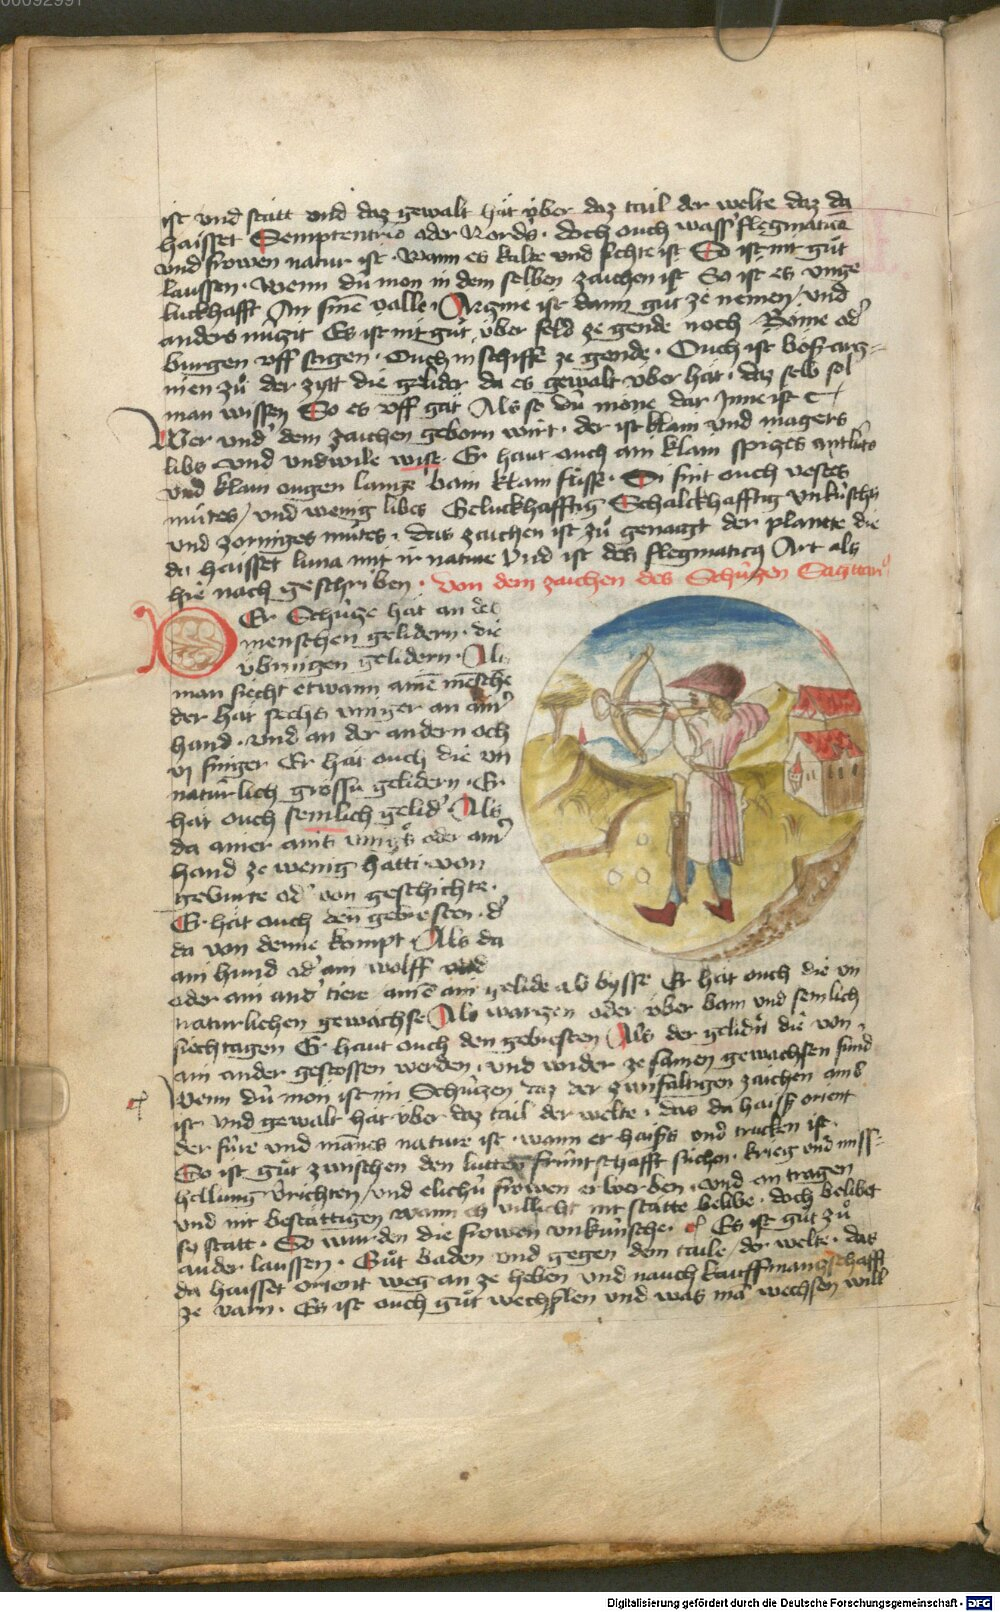 00092991
ist vnd statt vnd daz gewalt hät v̊ber daz tail der welte daz da
haisset Semptentrio oder Nords · doch ouch wass' flegmatica
vnd frowen natur ist · Wann es kalte vnd fuchte ist So ist nit gůt
laussen · Wenn dú mon in dem selben zaichen ist So ist es vnge
luckhafft An sinē valle · Arznie ist dann gůt ze nemen / vnd
anders nùgit Es ist nit gůt v̊ber feld ze gende noch Böme od'
burgen vff stigen · Ouch in schiffe ze gende · Ouch ist böß artz-
nien zů der zytt die gelider da es gewalt v̊ber hät · daz selb sol
man wissen So es vff gät Als so dú mone dar Inne ist
Wer vnd' dem zaichen geborn wirt · der ist klain vnd magers
libs vnd vndwile wise Er haut ouch ain klain spizes antlúts
vnd klain ougen lange bain klain fùsse · Si sint ouch vestes
mùtes / vnd wenig libes Geluckhafftig Schalckhafftig vnkúschs
vnd zorniges mùtes · das zaichen ist zů genaigt der planete die
da haisset luna mit ir nature vnd ist des flegmaticq Art als
hie nach geschriben · von dem zaichen des Schúzen Sagittari9
Der Schúze hät an des
menschen gelidern · die
v̊brigen gelidern · Als
man siecht etwann ainē mēsche
der hät sechs vinger an ain'
hand · vnd an der andern och
vj finger Er hät ouch die vn
natúrlich grossú gelidern · Er
hät ouch semlich gelid' · Als
da ainer ains vings oder ain'
hand ze wenig hätti von
geburte od' von geschichte ·
Er hät ouch den gebresten · d'
da von denne kompt · Als da
ain hund od' ain wolff
oder ain and' tiere ainē ain gelide ab bysse Er hät ouch die vn
naturlichen gewächse Als warzen oder v̊ber bain vnd semlich
siechtagen Er haut ouch den gebresten Als der gelidn die von
ain ander gestossen werden · vnd wider ze samen gewachsen sind
Wenn dú mon ist im Schúzen daz der zwifaltigen zaichen ains
ist vnd gewalt hät v̊ber daz tail der welte · das da haisst orient
der fúre vnd mānes nature ist · wann er haiß vnd trucken ist ·
So ist gůt zwischen den lutten frùntschafft sùchen · krieg vnd miss-
hellung v̊richten / vnd elichú frowen erwerben · vnd an tragen
vnd nit bestättigen wann es villicht nit stätte belibe · doch belibet
sy statt · So wurden die frowen vnkúsche · Es ist gůt zů
ander laussen · Gůt baden vnd gegen dem taile der welte · das
da haisset orient weg an ze heben vnd nauch kauffmanschafft
ze varn · Es ist ouch gůt wechslen vnd was mā wechsen will
Digitalisierung gefördert durch die Deutsche Forschungsgemeinschaft - DFG